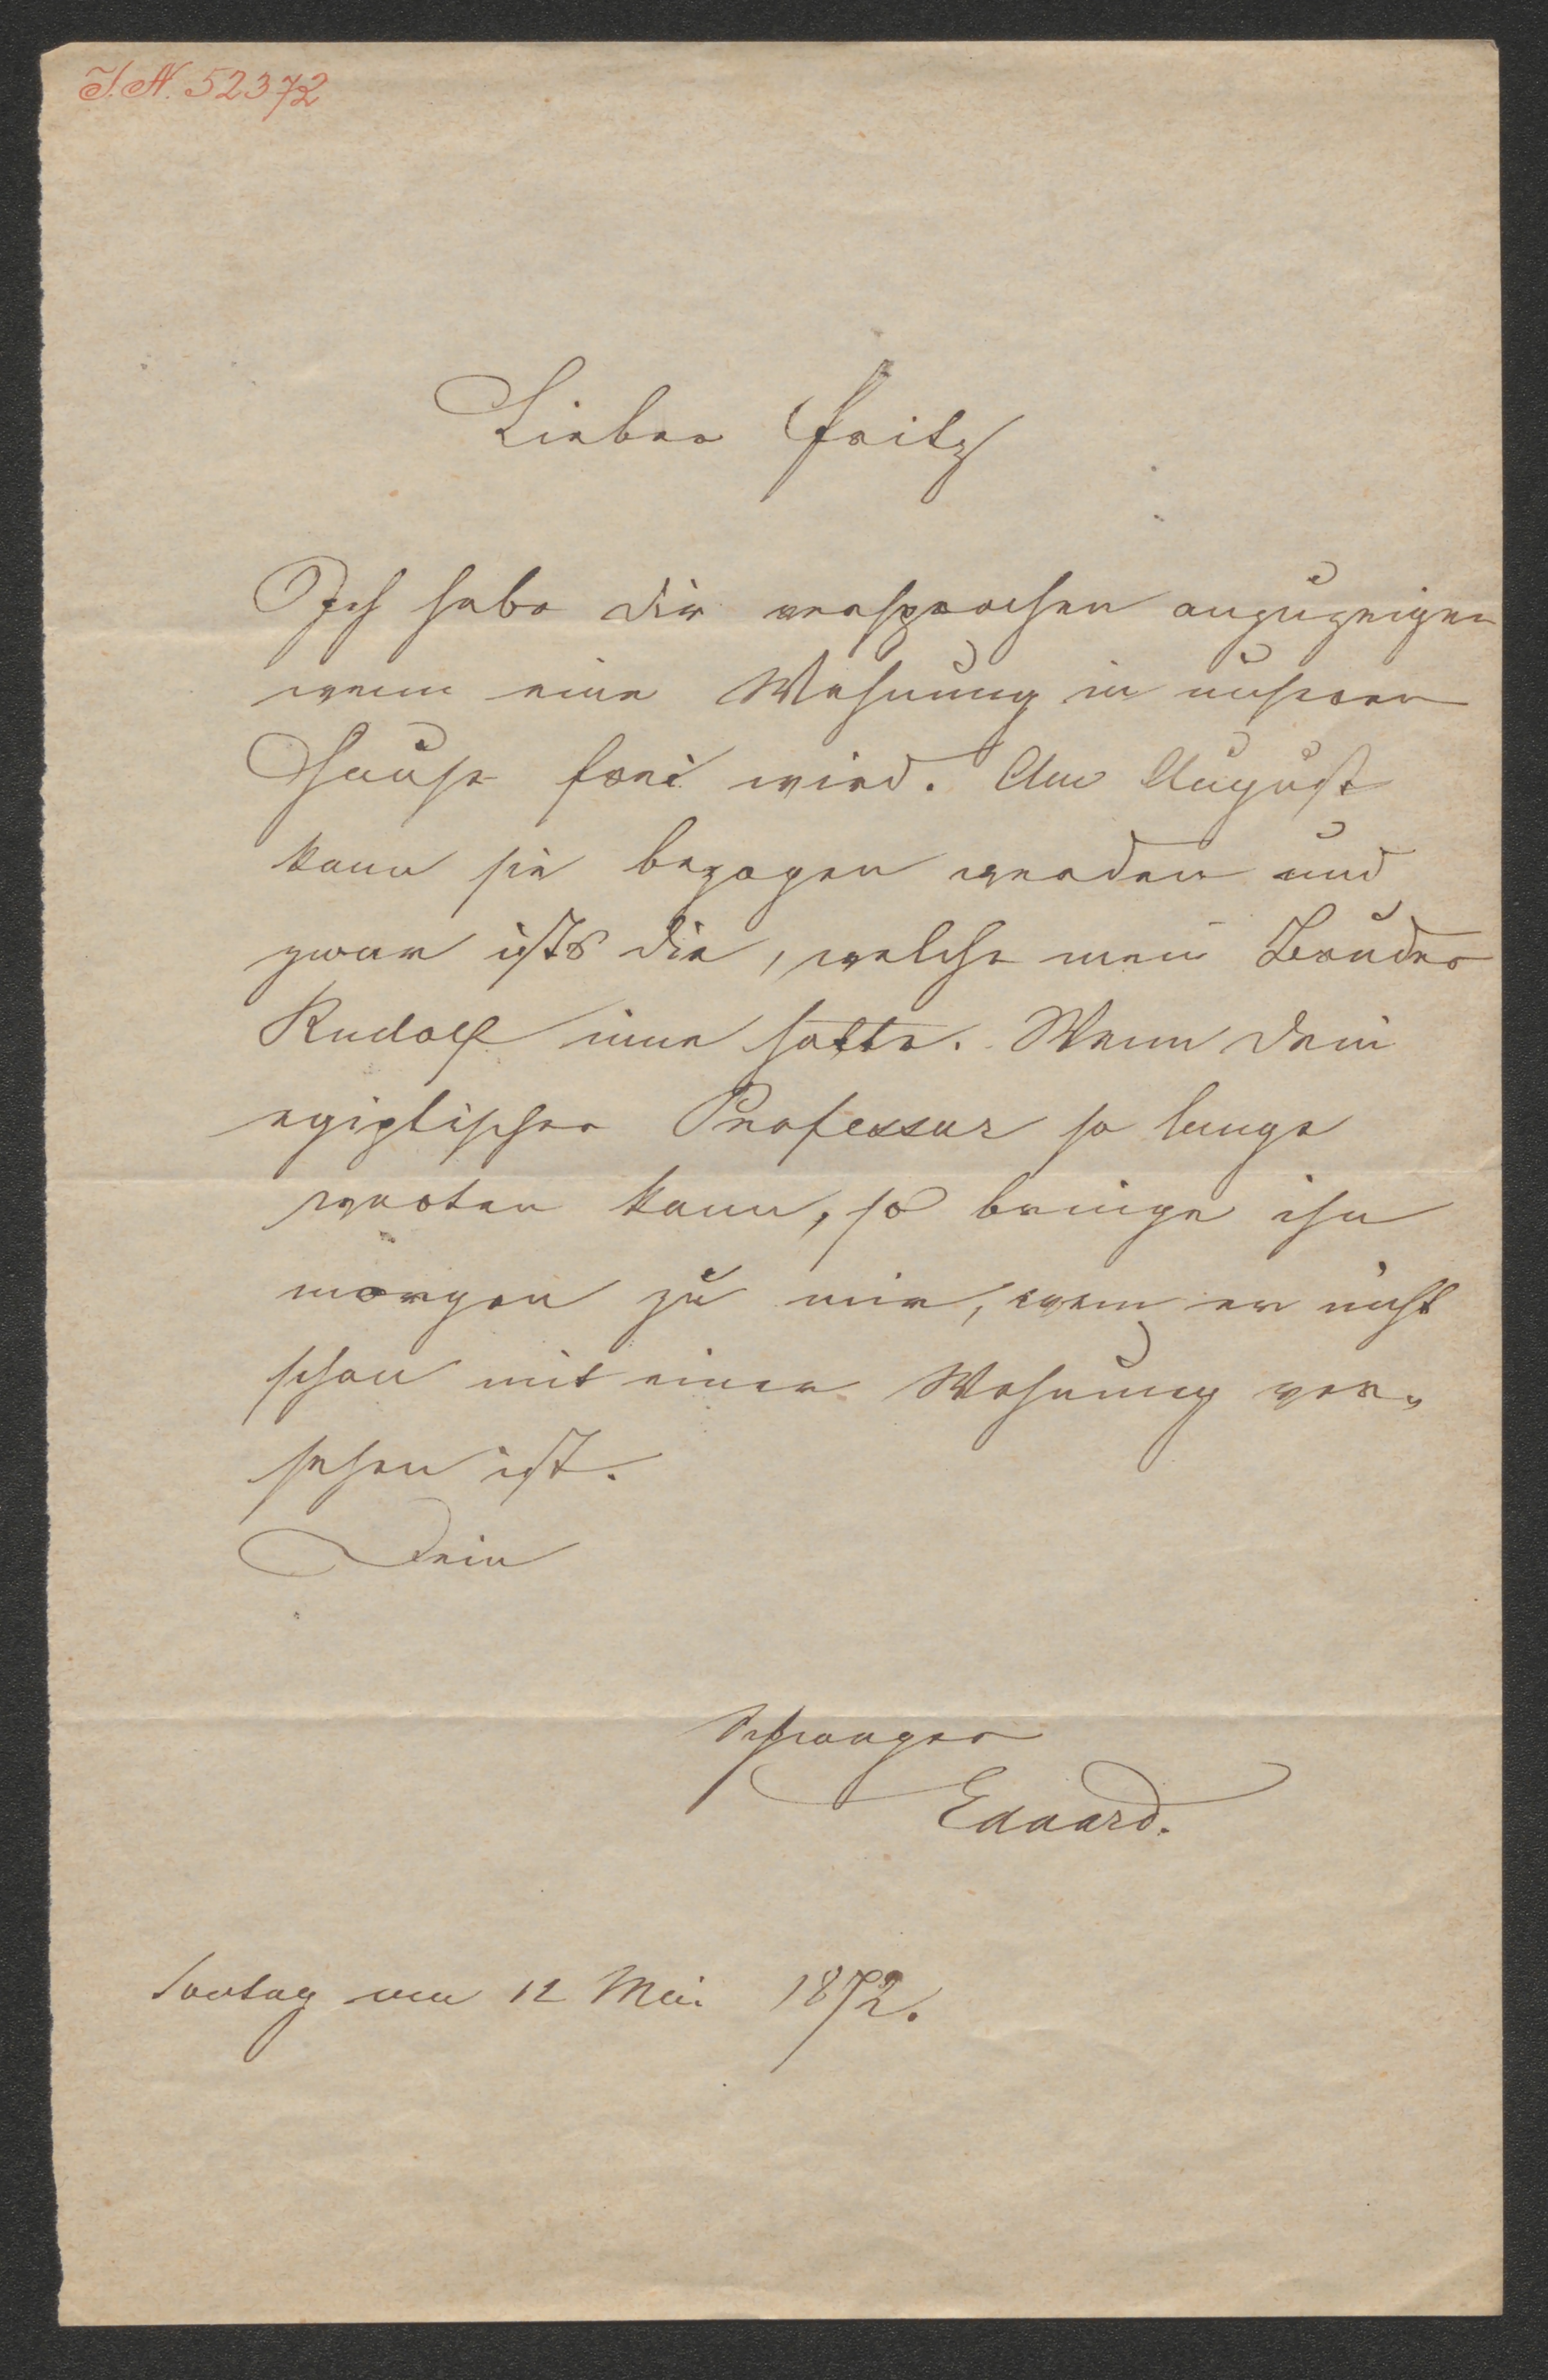 I. N. 52372
Lieber Fritz
Ich habe dir versprochen anzuzeigen
wenn eine Wohnung in unserem
Hause frei wird. Am August
kann sie bezogen werden und
zwar ists die, welche mein Bruder
Rudolf inne hatte. Wenn dein
egiptischer Professor so lange
warten kann, so bringe ihn
morgen zu mir, wenn er nicht
schon mit einer Wohnung ver„
sehen ist.
Dein
Schwager
Eduard.
Sontag am 12 Mai 1872.